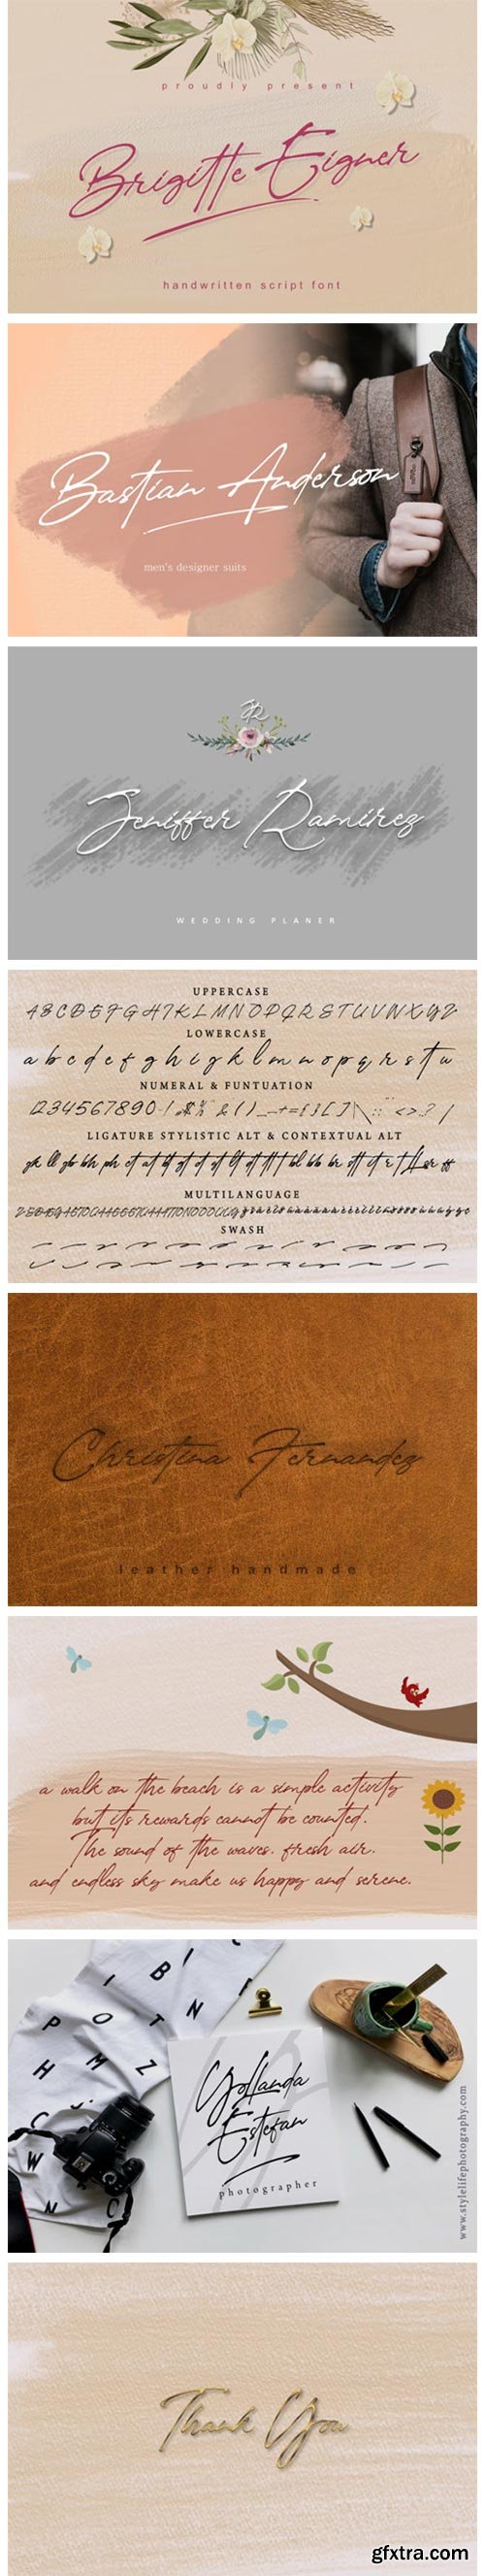 proudly present
Brigitte Eigner
handwritten script font
Bastian Anderson
men's designer suits
JR
Jeniffer Ramirez
WEDDING PLANER
UPPERCASE
A B C D E F G H I K L M N O P Q R S T U V W X Y Z
LOWERCASE
a b c d e f g h i j k l m n o p q r s t u
NUMERAL & FUNTUATION
1234567890
LIGATURE STYLISTIC ALT & CONTEXTUAL ALT
MULTILANGUAGE
SWASH
Christina Fernandez
leather handmade
a walk on the beach is a simple activity
but its rewards cannot be counted.
The sound of the waves. fresh air.
and endless sky make us happy and serene.
I B
P O T I N
H M Z
C
W N C
Yollanda
Estefan
photographer
www.stylelifephotography.com
Thank You
gfxtra.com